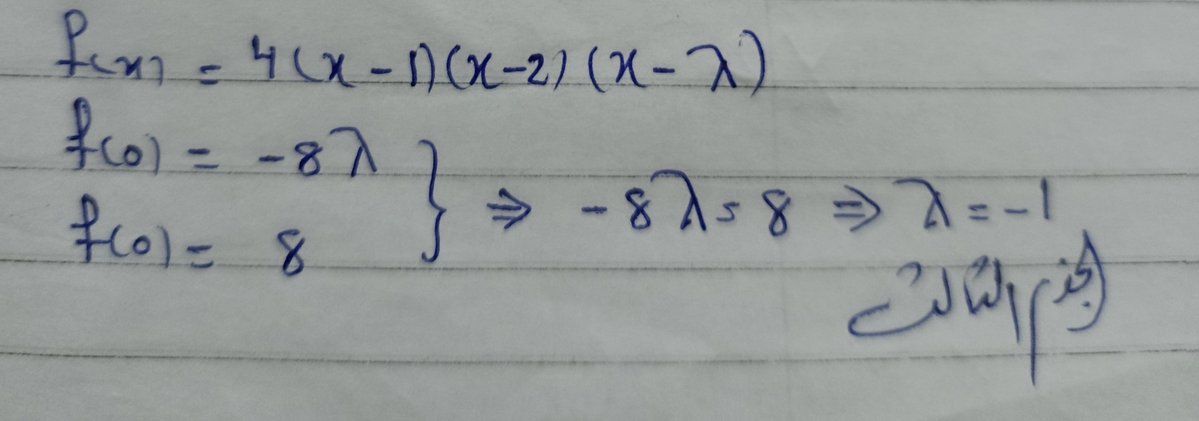 f(x) = 4(x-1)(x-2)(x-λ)
f(0) = -8λ
f(0) = 8 } ⇒ -8λ = 8 ⇒ λ = -1
الجذر الثالث